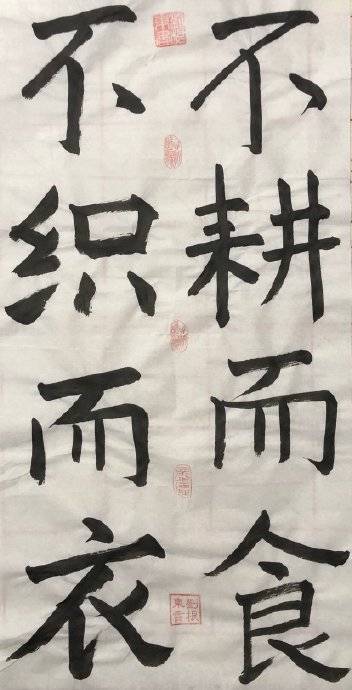 不耕而食
不织而衣